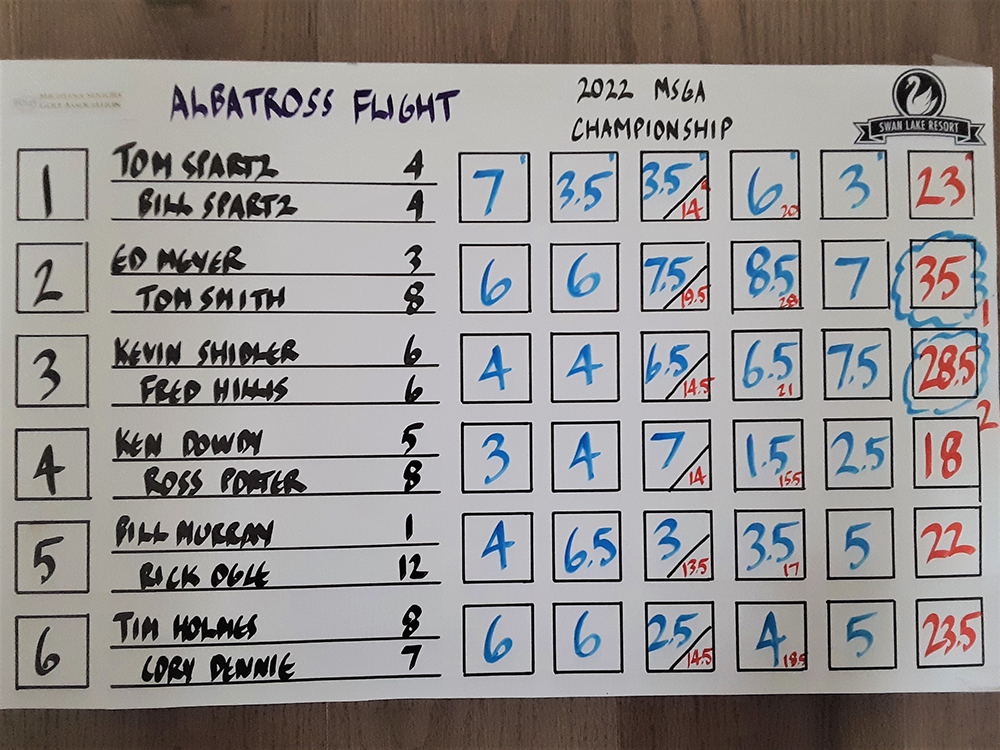 ALBATROSS FLIGHT
2022 MSGA
CHAMPIONSHIP
GOLF ASSOCIATION
SWAN LAKE RESORT
1 TOM SPARTZ 4 7 3.5 3.5 14 6 20 3 23
BILL SPARTZ 4
2 ED MEYER 3 6 6 7.5 19.5 8.5 28 7 35 1
TOM SMITH 8
3 KEVIN SHIDLER 6 4 4 6.5 14.5 6.5 21 7.5 28.5 2
FRED HILLIS 6
4 KEN DOWDY 5 3 4 7 14 1.5 15.5 2.5 18
ROSS PORTER 8
5 BILL MURRAY 1 4 6.5 3 13.5 3.5 17 5 22
RICK OGLE 12
6 TIM HOLMES 8 6 6 2.5 14.5 4 18.5 5 23.5
CORY DENNIE 7